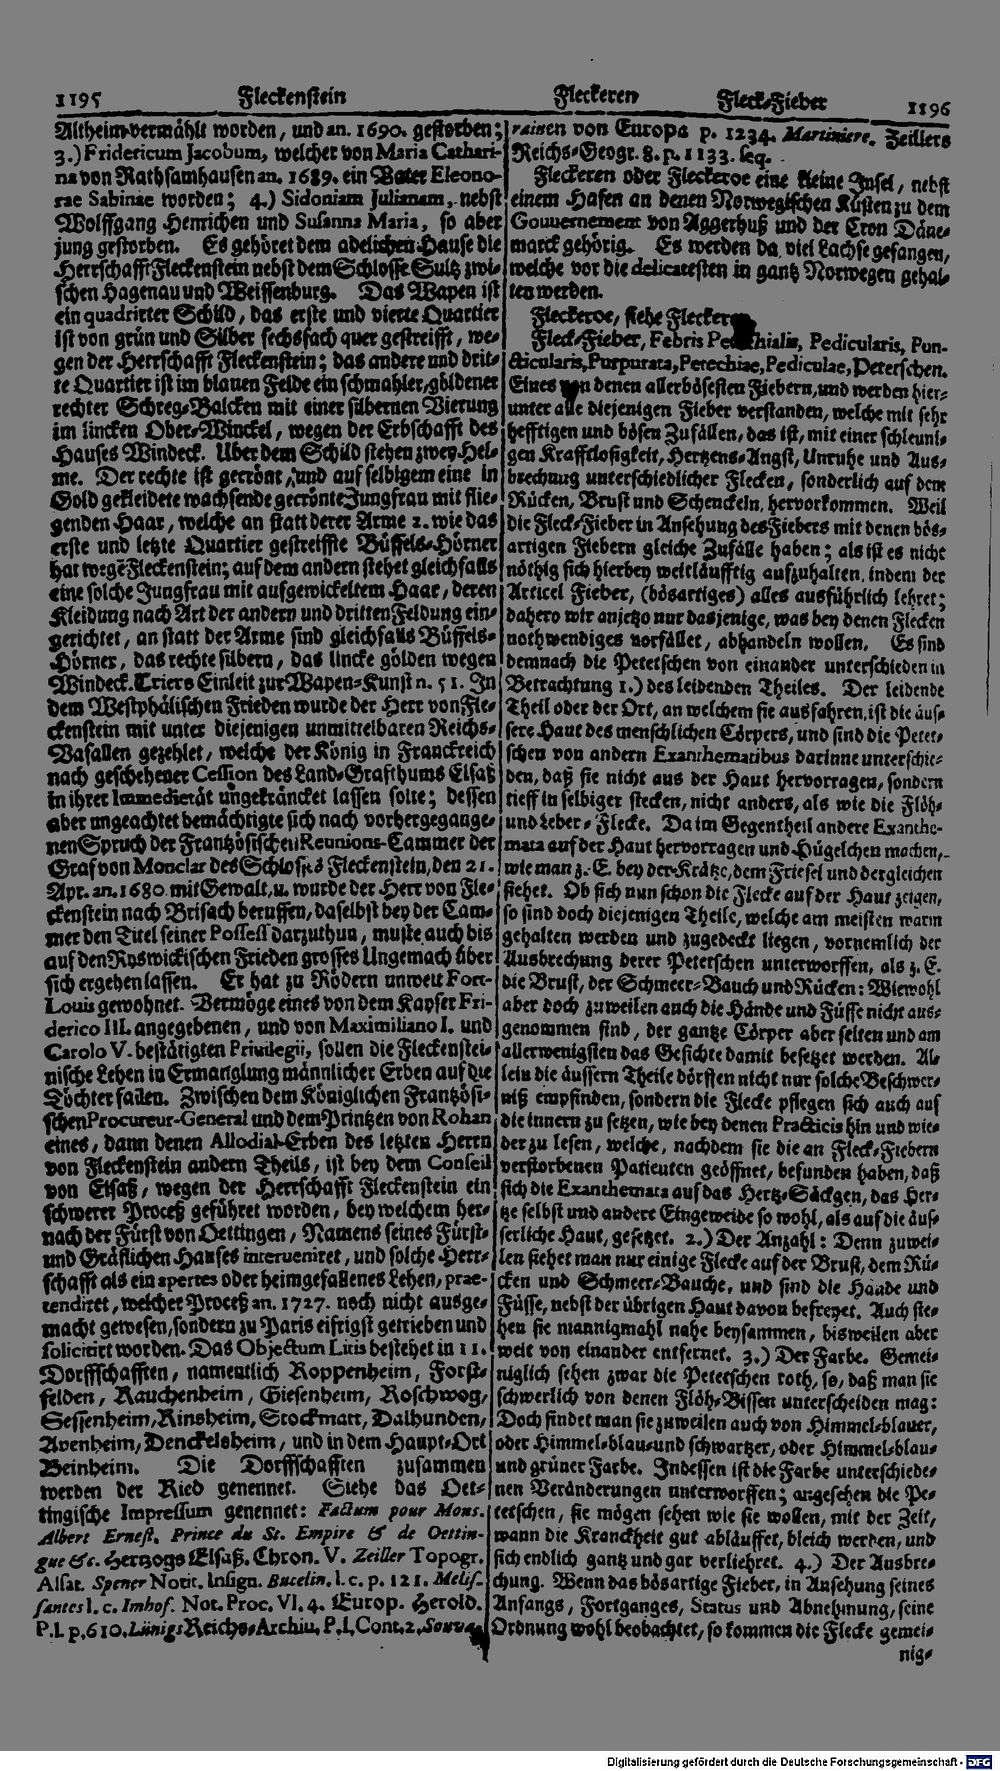 1195 Fleckenstein
Fleckeren Fleck-Fieber 1196
Altheim vermählt worden, und an. 1690. gestorben;
3.) Fridericum Jacobum, welcher von Maria Cathari-
na von Rathsamhausen an. 1689. ein Vater Eleono-
rae Sabinae worden; 4.) Sidoniam Julianam, nebst
Wolffgang Henrichen und Susanna Maria, so aber
jung gestorben. Es gehöret dem adelichen Hause die
Herrschafft Fleckenstein nebst dem Schlosse Sultz zwi-
schen Hagenau und Weissenburg. Das Wapen ist
ein quadrirter Schild, das erste und vierte Quartier
ist von grün und Silber sechsfach quer gestreifft, we-
gen der Herrschafft Fleckenstein; das andere und drit-
te Quartier ist im blauen Felde ein schmahler, göldener
rechter Schreg-Balcken mit einer silbernen Vierung
im lincken Ober-Winckel, wegen der Erbschafft des
Hauses Windeck. Uber dem Schild stehen zwey Hel-
me. Der rechte ist gecrönt, und auf selbigem eine in
Gold gekleidete wachsende gecrönte Jungfrau mit flie-
genden Haar, welche an statt derer Arme 2. wie das
erste und letzte Quartier gestreiffte Büffels-Hörner
hat wegē Fleckenstein; auf dem andern stehet gleichfalls
eine solche Jungfrau mit aufgewickeltem Haar, deren
Kleidung nach Art der andern und dritten Feldung ein-
gerichtet, an statt der Arme sind gleichfalls Büffels-
Hörner, das rechte silbern, das lincke gölden wegen
Windeck. Triers Einleit zur Wapen-Kunst n. 51. In
dem Westphälischen Frieden wurde der Herr von Fle-
ckenstein mit unter diejenigen unmittelbaren Reichs-
Vasallen gezehlet, welche der König in Franckreich
nach geschehener Cession des Land-Grafthums Elsaß
in ihrer Immedietät ungekräncket lassen solte; dessen
aber ungeachtet bemächtigte sich nach vorhergegange-
nen Spruch der Frantzösischen Reunions-Cammer der
Graf von Monclar des Schlosses Fleckenstein, den 21.
Apr. an. 1680. mit Gewalt, u. wurde der Herr von Fle-
ckenstein nach Brisach beruffen, daselbst bey der Cam-
mer den Titel seiner Possess darzuthun, muste auch bis
auf den Ryswickischen Frieden grosses Ungemach über
sich ergehen lassen. Er hat zu Rödern unweit Fort-
Louis gewohnet. Vermöge eines von dem Kayser Fri-
derico III. angegebenen, und von Maximiliano I. und
Carolo V. bestätigten Privilegii, sollen die Fleckenstei-
nische Lehen in Ermanglung männlicher Erben auf die
Töchter fallen. Zwischen dem Königlichen Frantzösi-
schen Procureur-General und dem Printzen von Rohan
eines, dann denen Allodial-Erben des letzten Herrn
von Fleckenstein andern Theils, ist bey dem Conseil
von Elsaß, wegen der Herrschafft Fleckenstein ein
schwerer Proceß geführet worden, bey welchem her-
nach der Fürst von Oettingen, Namens seines Fürst-
und Gräflichen Hauses interveniret, und solche Herr-
schafft als ein apertes oder heimgefallenes Lehen, prae-
tendiret, welcher Proceß an. 1727. noch nicht ausge-
macht gewesen, sondern zu Paris eifrigst getrieben und
solicitirt worden. Das Objectum Litis bestehet in 11.
Dorffschafften, namentlich Roppenheim, Forst-
felden, Rauchenheim, Giesenheim, Roschwog,
Sessenheim, Rinsheim, Stockmatt, Dalhunden,
Avenheim, Denckelsheim, und in dem Haupt-Ort
Beinheim. Die Dorffschafften zusammen
werden der Ried genennet. Siehe das Oet-
tingische Impressum genennet: Factum pour Mons.
Albert Ernest. Prince du St. Empire & de Oettin-
gue &c. Hertzogs Elsaß. Chron. V. Zeiller Topogr.
Alsat. Spener Notit. Insign. Bucelin. l. c. p. 121. Melis-
santes l. c. Imhof. Not. Proc. VI. 4. Europ. Herold.
P. I. p. 610. Lünigs Reichs-Archiv. P. I. Cont. 2.
rainen von Europa p. 1234. Martiniere. Zeillers
Reichs-Geogr. 8. p. 1133. seq.
Fleckeren oder Fleckeroe eine kleine Insel, nebst
einem Hafen an denen Norwegischen Küsten zu dem
Gouvernement von Aggerhuß und der Cron Däne-
marck gehörig. Es werden da viel Lachse gefangen,
welche vor die delicatesten in gantz Norwegen gehal-
ten werden.
Fleckeroe, siehe Fleckeren
Fleck-Fieber, Febris Petechialis, Pedicularis, Pun-
cticularis, Purpurata, Petechiae, Pediculae, Petetschen.
Eines von denen allerbösesten Fiebern, und werden hier-
unter alle diejenigen Fieber verstanden, welche mit sehr
hefftigen und bösen Zufällen, das ist, mit einer schleuni-
gen Krafftlosigkeit, Hertzens-Angst, Unruhe und Aus-
brechung unterschiedlicher Flecken, sonderlich auf dem
Rücken, Brust und Schenckeln, hervorkommen. Weil
die Fleck-Fieber in Ansehung des Fiebers mit denen bös-
artigen Fiebern gleiche Zufälle haben; als ist es nicht
nöthig sich hierbey weitläufftig aufzuhalten, indem der
Articel Fieber, (bösartiges) alles ausführlich lehret;
dahero wir anjetzo nur dasjenige, was bey denen Flecken
nothwendiges vorfället, abhandeln wollen. Es sind
demnach die Petetschen von einander unterschieden in
Betrachtung 1.) des leidenden Theiles. Der leidende
Theil oder der Ort, an welchem sie ausfahren, ist die äus-
sere Haut des menschlichen Cörpers, und sind die Petet-
schen von andern Exanthematibus darinne unterschie-
den, daß sie nicht aus der Haut hervorragen, sondern
tieff in selbiger stecken, nicht anders, als wie die Flöh-
und Leber-Flecke. Da im Gegentheil andere Exanthe-
mata auf der Haut hervorragen und Hügelchen machen,
wie man z. E. bey der Krätze, dem Friesel und dergleichen
siehet. Ob sich nun schon die Flecke auf der Haut zeigen,
so sind doch diejenigen Theile, welche am meisten warm
gehalten werden und zugedeckt liegen, vornemlich der
Ausbrechung derer Petetschen unterworffen, als z. E.
die Brust, der Schmeer-Bauch und Rücken: Wiewohl
aber doch zuweilen auch die Hände und Füsse nicht aus-
genommen sind, der gantze Cörper aber selten und am
allerwenigsten das Gesichte damit besetzet werden. Al-
lein die äussern Theile dörffen nicht nur solche Beschwer-
niß empfinden, sondern die Flecke pflegen sich auch auf
die innern zu setzen, wie bey denen Practicis hin und wie-
der zu lesen, welche, nachdem sie die an Fleck-Fiebern
verstorbenen Patienten geöffnet, befunden haben, daß
sich die Exanthemata auf das Hertz-Säckgen, das Her-
tze selbst und andere Eingeweide so wohl, als auf die äus-
serliche Haut, gesetzet. 2.) Der Anzahl: Denn zuwei-
len siehet man nur einige Flecke auf der Brust, dem Rü-
cken und Schmeer-Bauche, und sind die Hände und
Füsse, nebst der übrigen Haut davon befreyet. Auch ste-
hen sie mannigmahl nahe beysammen, bisweilen aber
weit von einander entfernet. 3.) Der Farbe. Gemei-
niglich sehen zwar die Petetschen roth, so, daß man sie
schwerlich von denen Flöh-Bissen unterscheiden mag:
Doch findet man sie zuweilen auch von Himmel-blauer,
oder Himmel-blau-und schwartzer, oder Himmel-blau-
und grüner Farbe. Indessen ist die Farbe unterschiede-
nen Veränderungen unterworffen; angesehen die Pe-
tetschen, sie mögen sehen wie sie wollen, mit der Zeit,
wann die Kranckheit gut abläuffet, bleich werden, und
sich endlich gantz und gar verliehret. 4.) Der Ausbre-
chung. Wenn das bösartige Fieber, in Ansehung seines
Anfangs, Fortganges, Status und Abnehmung, seine
Ordnung wohl beobachtet, so kommen die Flecke gemei-
nig-
Digitalisierung gefördert durch die Deutsche Forschungsgemeinschaft - DFG